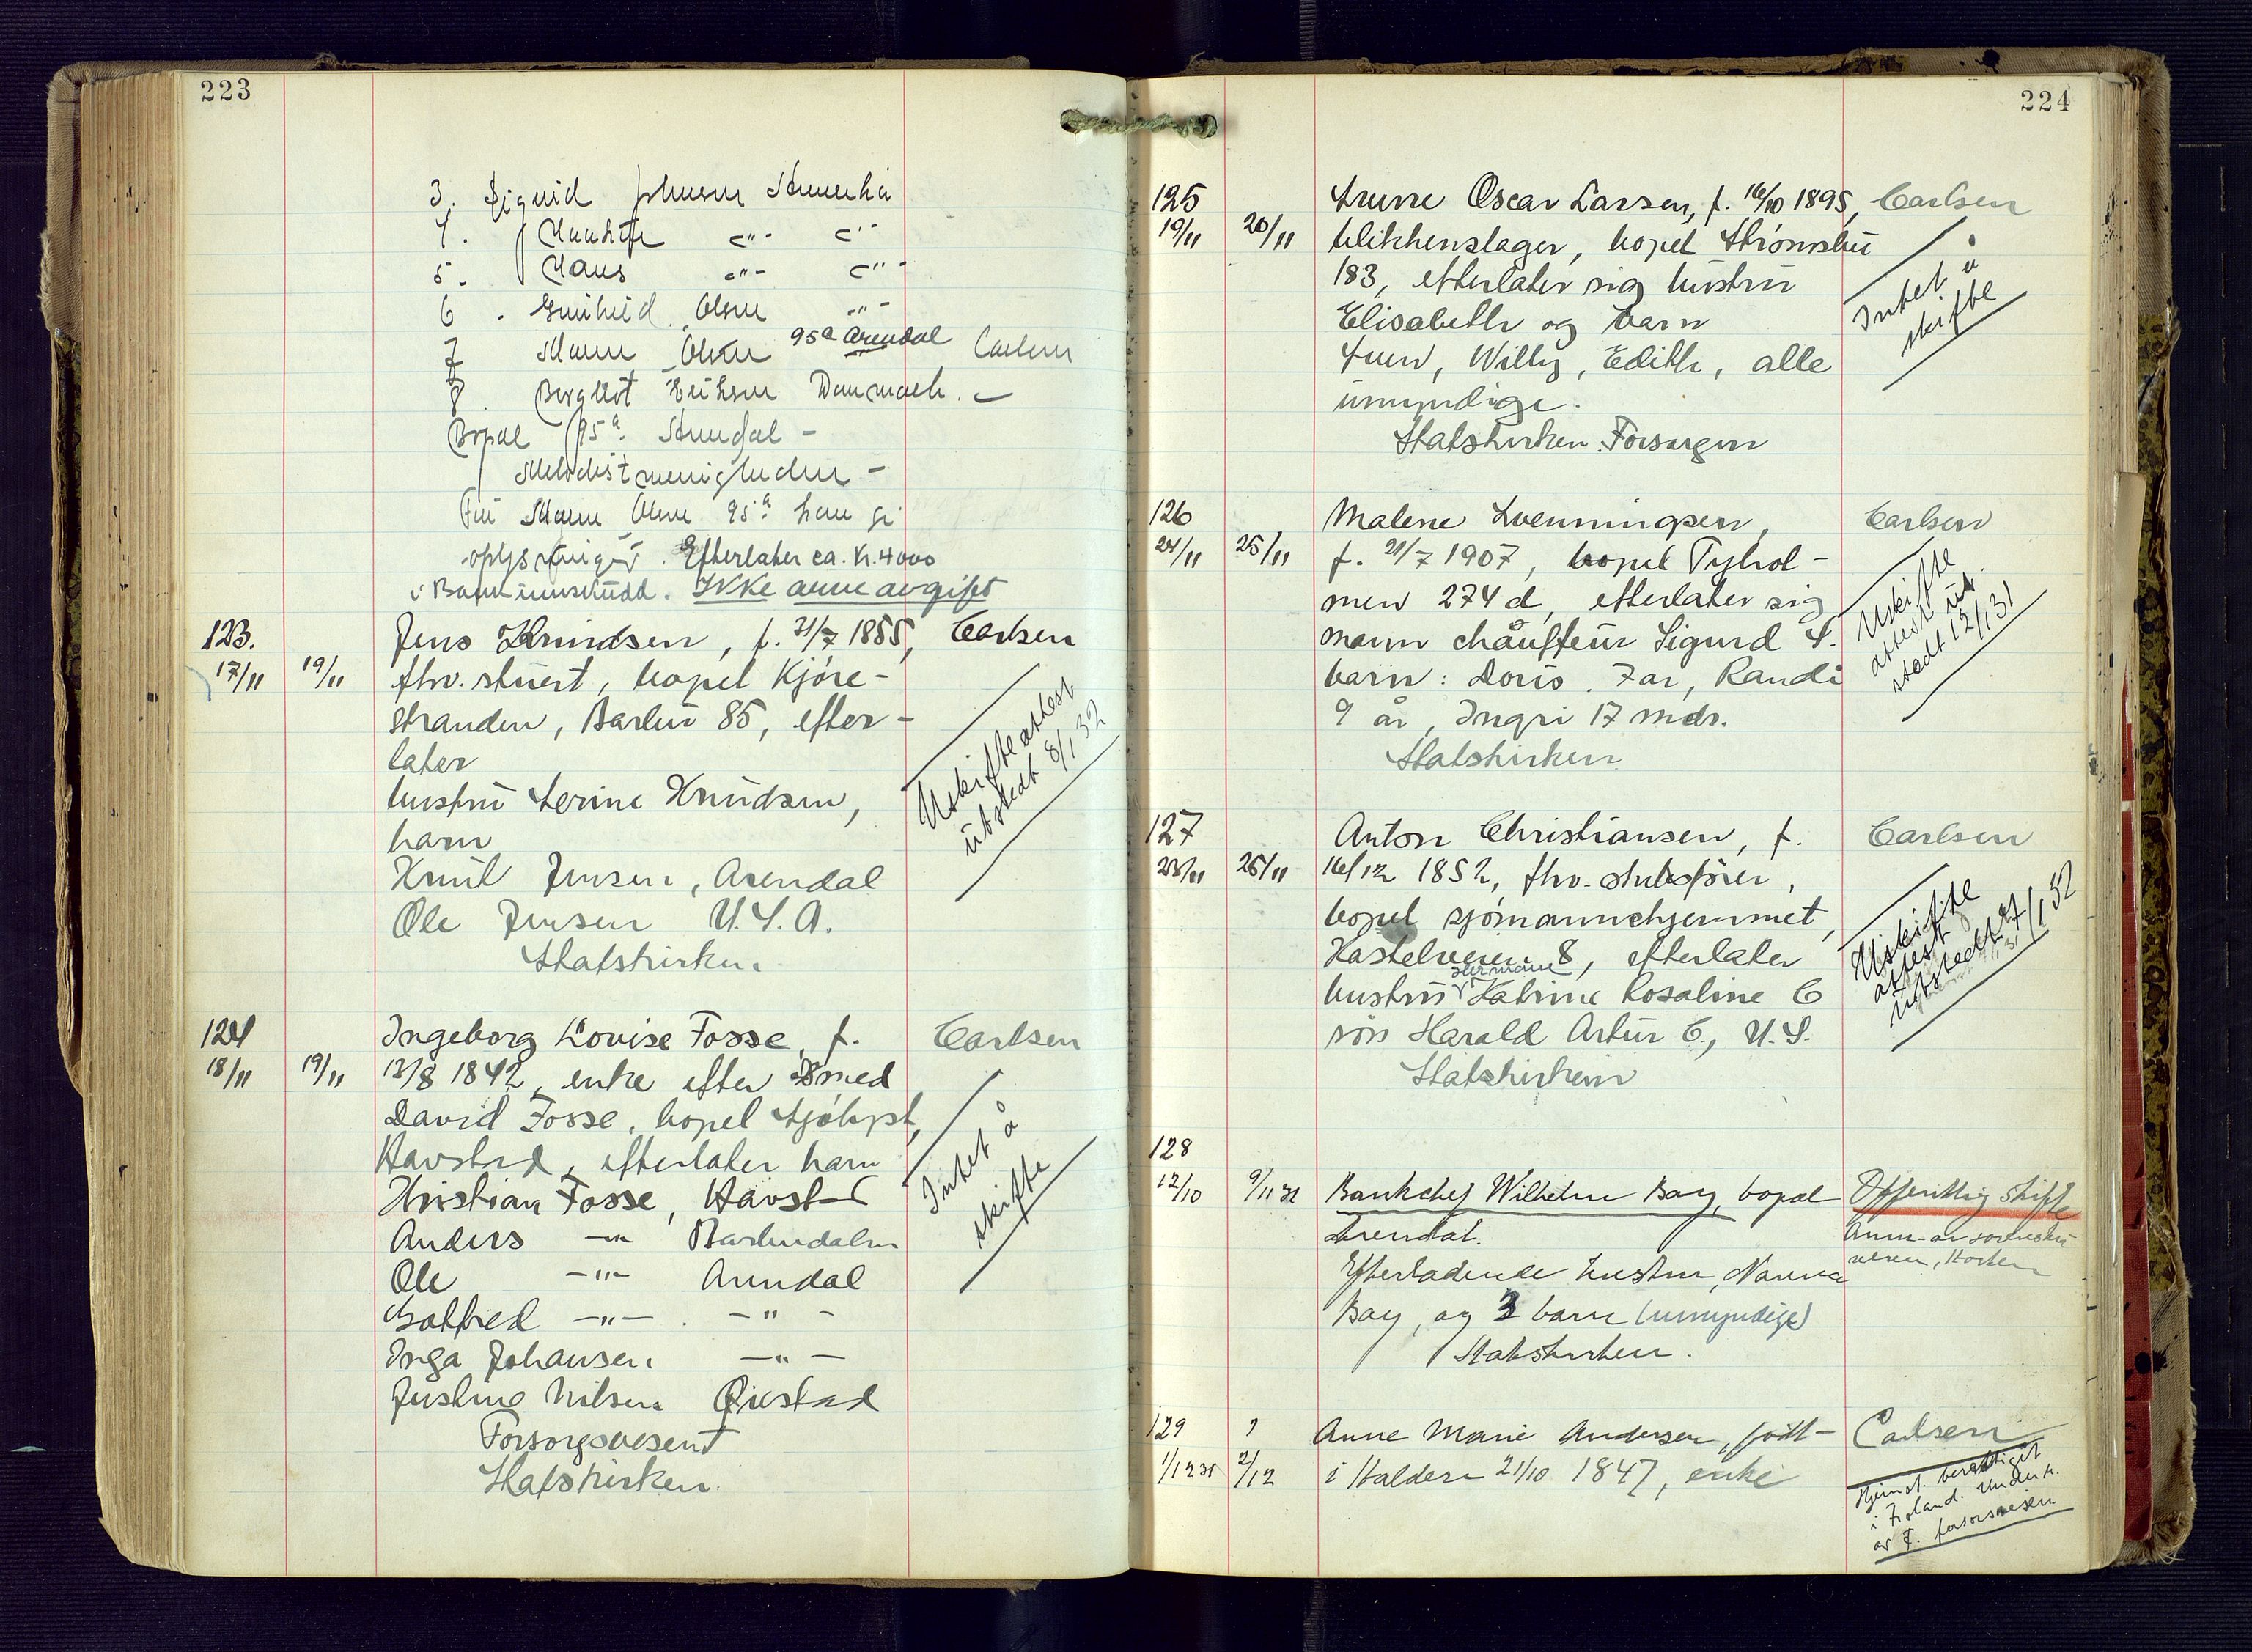 223
3. Sigurd Johnsen Amerika
4. —"— —"—
5. Hans —"— —"—
6. Gunhild Olsen —"—
7 Olsen 95a Arendal Carlsen
8. Bergliot Eriksen Danmark.
Bopæl 95a Arendal —
Metodistmenigheden —
Olsen 95a han gir
oplysninger. Efterlater ca. Kr. 4000
i Bankinnskudd. Ikke avgift
123.
17/11 19/11
Jens Knudsen, f. 21/7 1855, Carlsen
fhv. stuert, bopel Kjøre-
stranden, Barbu 85, efter-
later
hustru Serine Knudsen,
barn
Knut Jensen, Arendal
Ole Jensen U.S.A.
Statskirken.
Uskifteattest
utstedt 8/1 32
124
18/11 19/11
Ingeborg Lovise Fosse, f. Carlsen
13/8 1842, enke efter smed
David Fosse, bopel
Havstad, efterlater barn
Kristian Fosse, Havstad
Anders —"— Barbudalen
Ole —"— Arendal
Gotfred —"— —"—
Inga Johansen —"—
Justine Nilsen Øiestad
Forsorgsvesent
Statskirken.
Intet å
skifte
224
125
19/11 20/11
Oscar Larsen, f. 16/10 1895, Carlsen
blikkenslager, bopel Strømsbu
183, efterlater sig hustru
Elisabeth og barn
Willy, Edith, alle
umyndige.
Statskirken. Forsorgen
Intet å
skifte
126
24/11 25/11
Malene Svenningsen, Carlsen
f. 21/7 1907, bopel Tyhol-
men 274 d, efterlater sig
mann chauffeur Sigurd S.
barn: Doris. 7 år, Randi
9 år, Ingri 17 mdr.
Statskirken
Uskifte
attest ut
stedt 12/1 31
127
25/11 26/11
Anton Christiansen, f. Carlsen
16/12 1852, fhv. skibsfører,
bopel sjømannshjemmet,
Kastelveien 8, efterlater
hustru Hermane Katrine Rosaline C
søn Harald Artur C., U.S.
Statskirken
Uskifte
attest
utstedt 27/1 32
128
12/10 9/11 31
Bankchef Wilhelm Bay, bopæl Offentlig skifte
Arendal. Anm. av sorenskri
Efterladende hustru, Narena veren, Horten
Bay, og 3 barn (umyndige)
Statskirken.
129 ?
1/12 31 2/12
Anne Marie Andersen, født Carlsen
i Halden 21/10 1847, enke
Hjemst. berettiget
i Froland. Underh.
av F. forsorsvesen